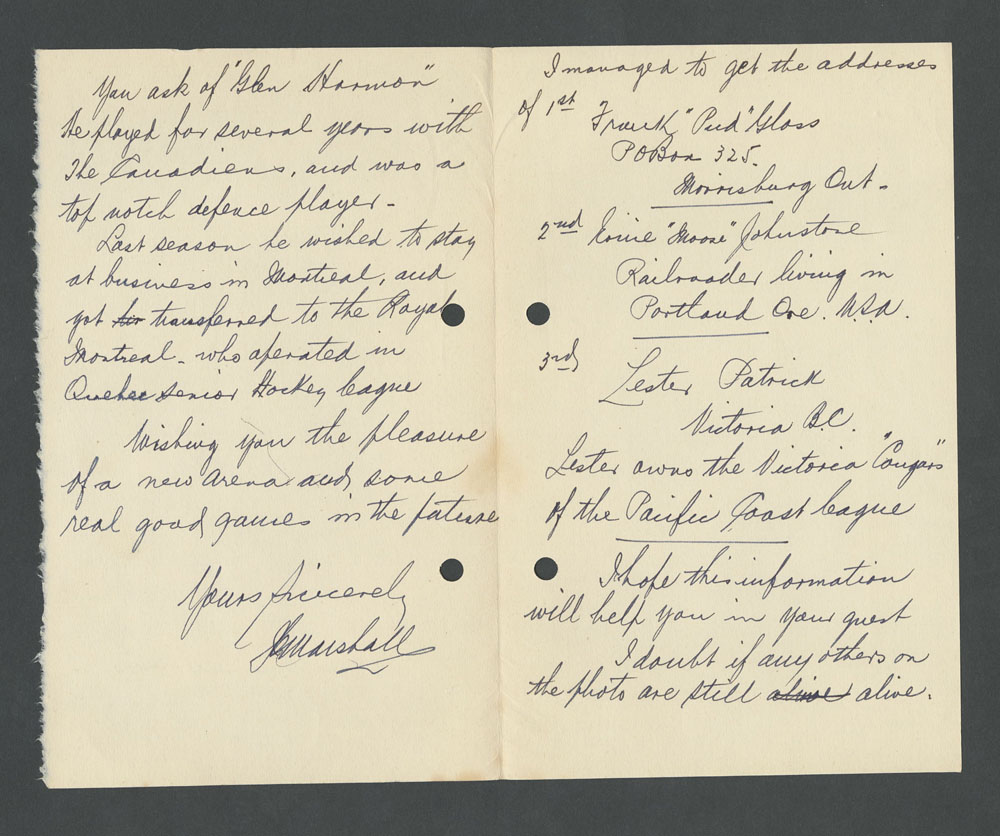 You ask of "Glen Harmon"
He played for several years with
The Canadiens, and was a
top notch defence player -
Last season he wished to stay
at business in Montreal, and
got his transferred to the Royal
Montreal - who operated in
Quebec senior Hockey league
Wishing you the pleasure
of a new arena and some
real good games in the future
Yours Sincerely
JCMarshall
I managed to get the addresses
of 1st
Frank "Pud" Glass
PO Box 325.
Morrisburg Ont -
2nd Ernie "Moose" Johnstone
Railroader living in
Portland Ore. U.S.A.
3rd
Lester Patrick
Victoria B.C.
Lester owns the Victoria "Cougars"
of the Pacific Coast league
I hope this information
will help you in your quest
I doubt if any others on
the photo are still alive alive.